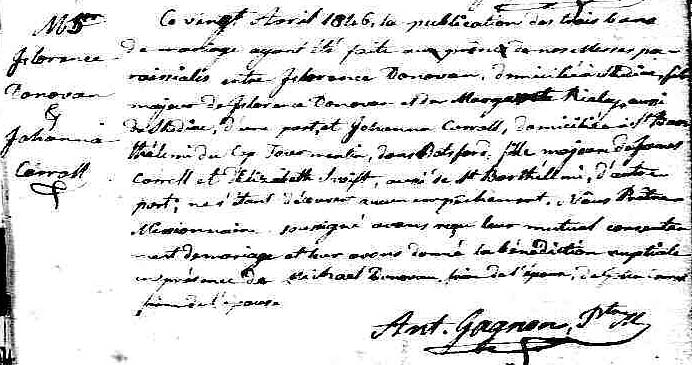 M 5e
Florence
Donovan
&
Johanna
Carroll
Ce vingt Avril 1846, la publication des trois bans
de mariage ayant été faite aux prônes de nos Messes pa-
roissiales entre Florence Donovan, domicilié à Shédiac, fils
majeur de Florence Donovan et de Margarette aussi
de Shédiac, d'une part, et Johanna Carroll, domiciliée à St Bar-
thélemi du Cap Tourmentin, dans Botsford, fille majeure de James
Carroll et d'Elizabeth Swift, aussi de St Barthélemi, d'autre
part; ne s'étant découvert aucun empêchement, Nous Prêtre
Missionnaire soussigné avons reçu leur mutuel consente-
ment de mariage et leur avons donné la bénédiction nuptiale
en présence de Michael Donovan, frère de l'époux, de
frère de l'épouse
Ant. Gagnon, Ptre M